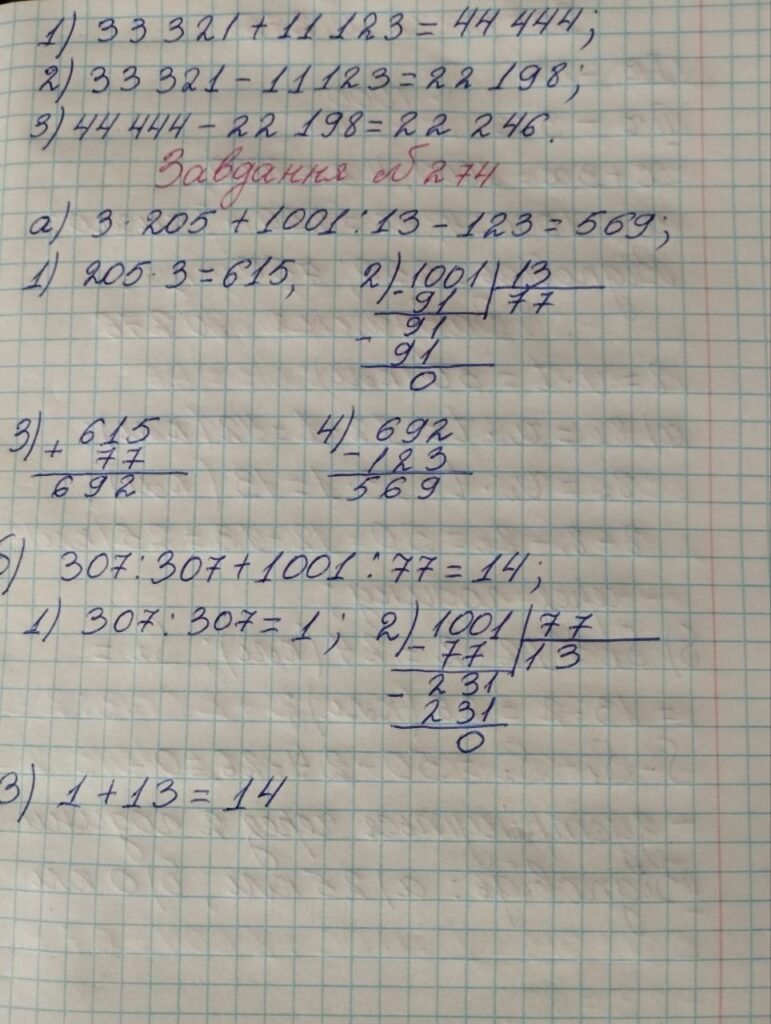 1) 33 321 + 11 123 = 44 444;
2) 33 321 - 11123 = 22 198;
3) 44 444 - 22 198 = 22 246.
Завдання № 274
а) 3 · 205 + 1001 : 13 - 123 = 569;
1) 205 · 3 = 615, 2) 1001 | 13
- 91 | 77
91
- 91
0
3) + 615 4) 692
77 - 123
692 569
б) 307 : 307 + 1001 : 77 = 14;
1) 307 : 307 = 1; 2) 1001 | 77
- 77 | 13
- 231
231
0
3) 1 + 13 = 14